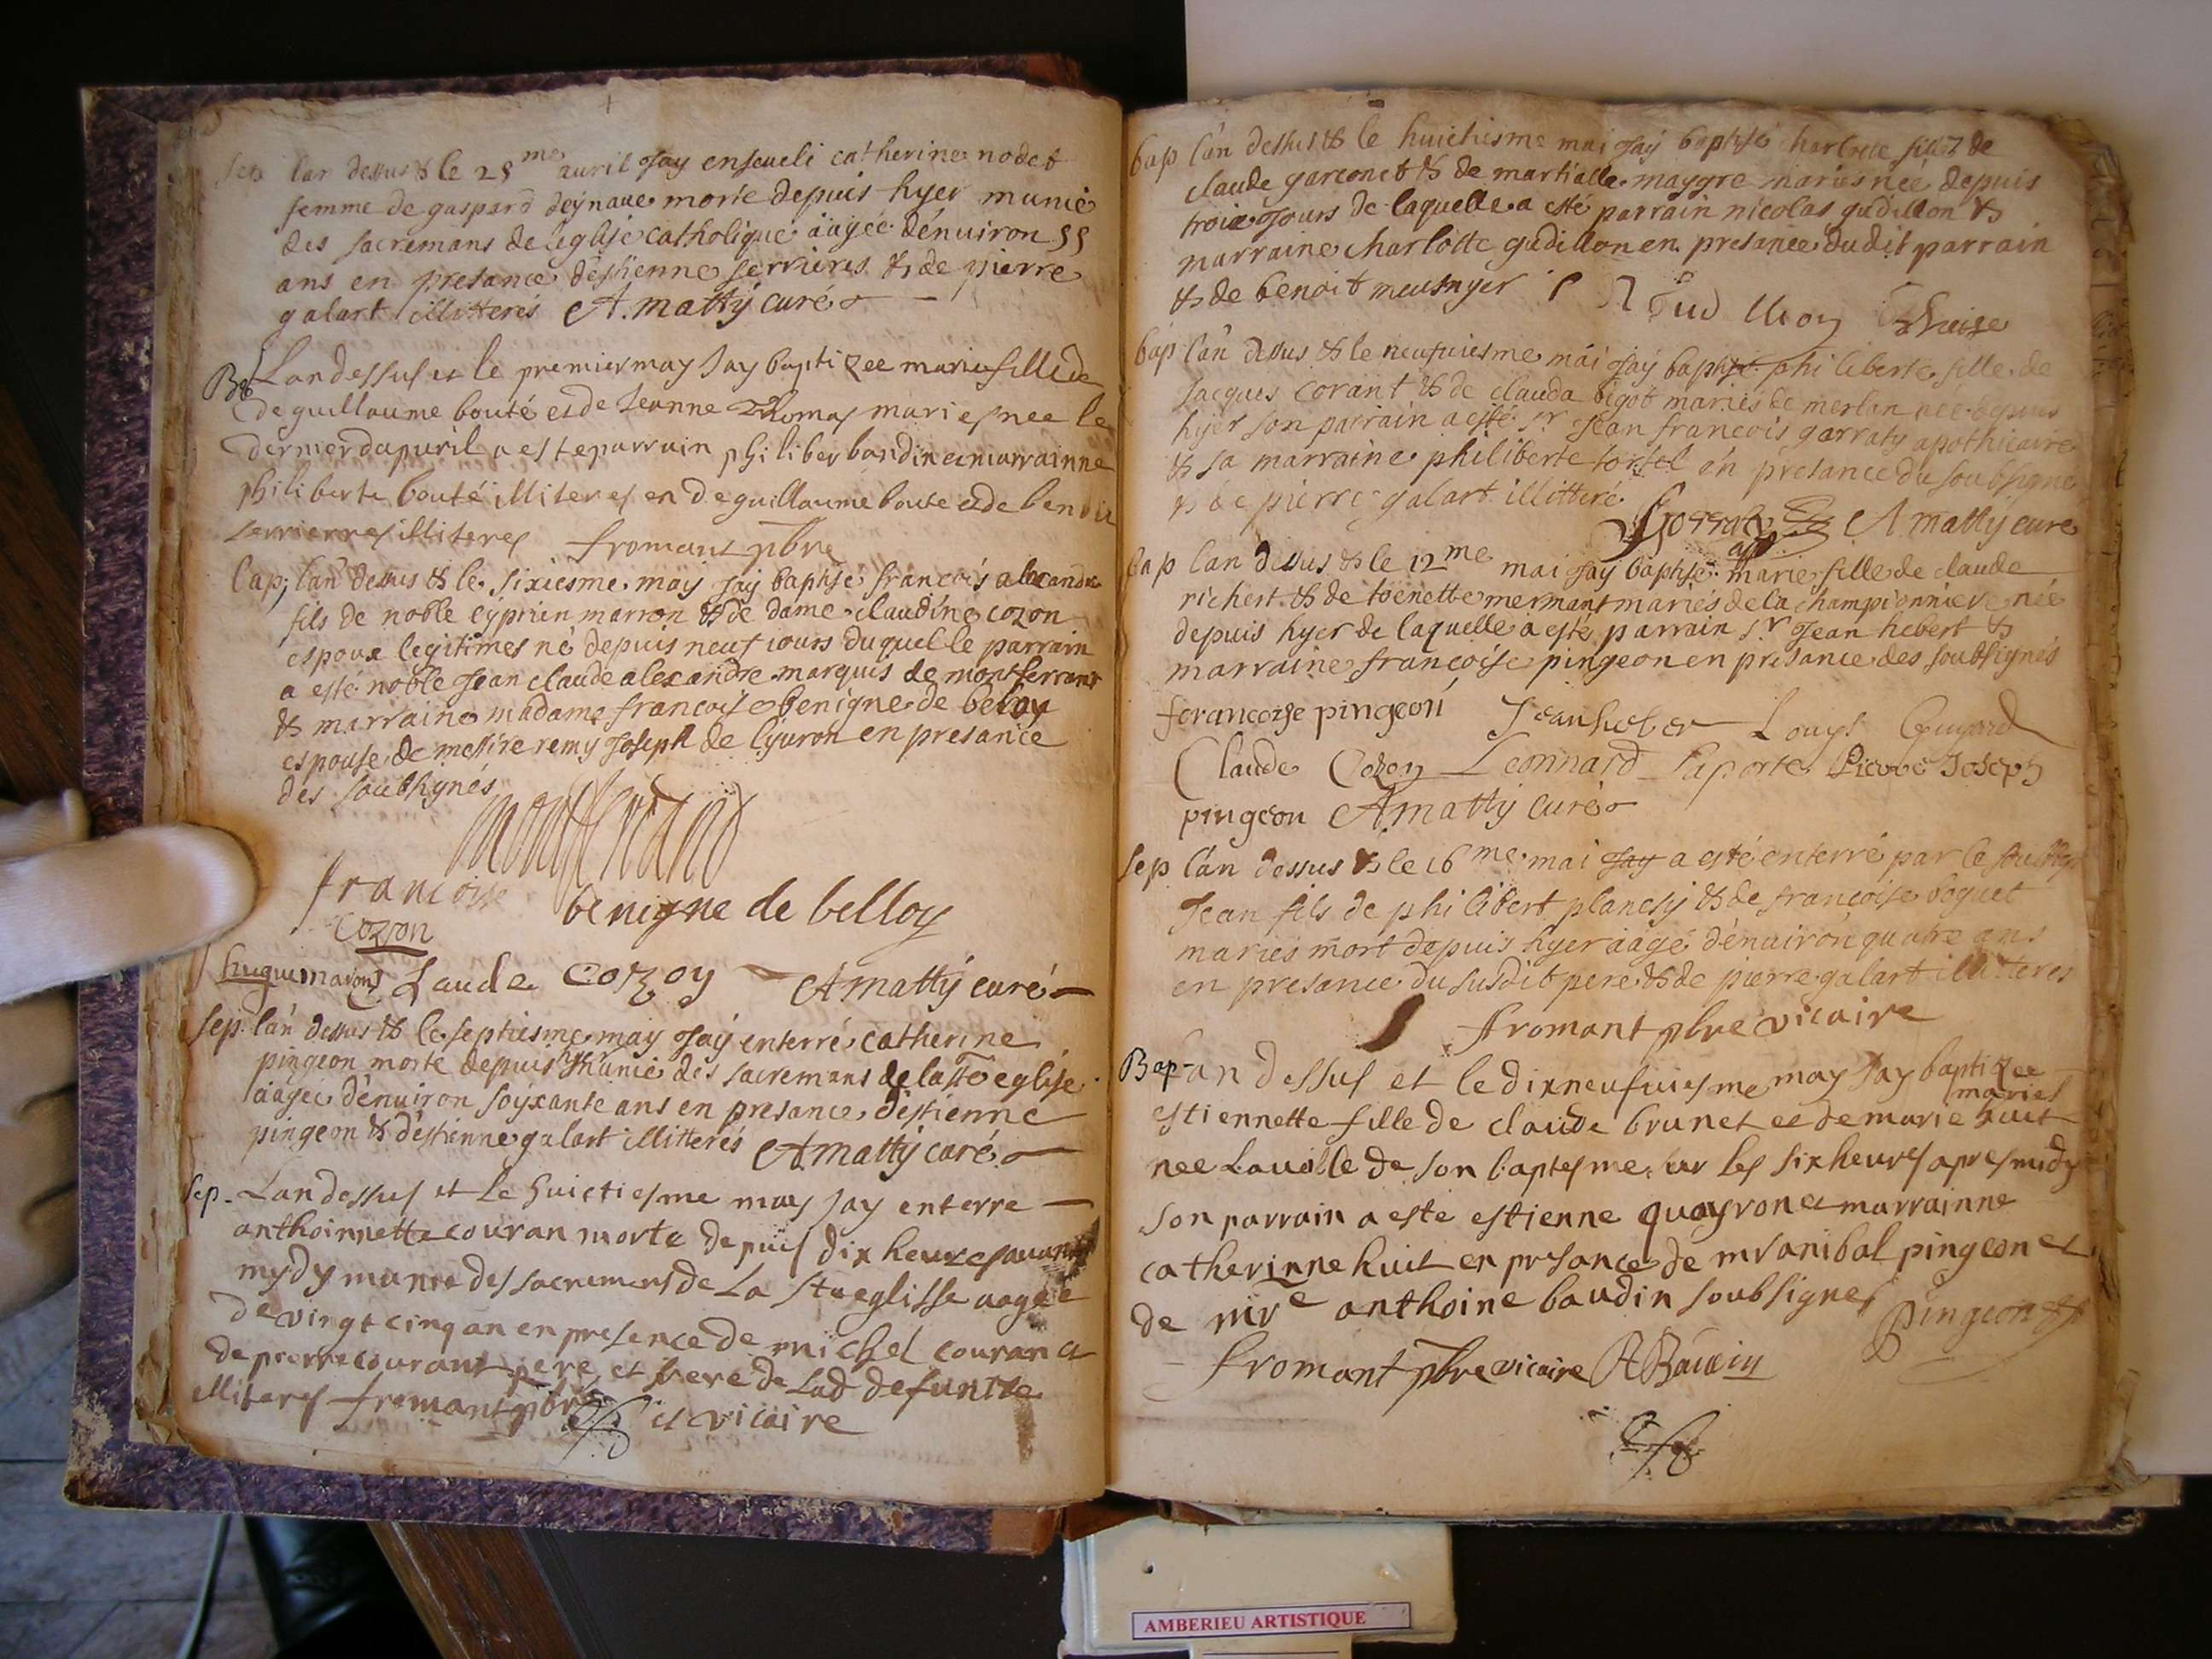 Sep lan dessus & le 28me auril Jay enseueli catherine nodet
femme de gaspard deynaue morte depuis hyer munie
des sacremans de leglise catholique aagée dénuiron 55
ans en presance déstienne serrieres & de pierre
galart illitterés A. matty curé
Bap Landessus et le premier may Jay baptizee marie fille de
de guillaume bouté et de Jeanne Thomas maries nee le
dernier dapuril a este parrain philiber baudin et marrainne
philiberte bouté illiteres en de guillaume boute et de benoit
serrierres illiteres fromant pbre
bap, lan dessus & le sixiesme may Jay baptisé francois alexandre
fils de noble cyprien marron & de dame claudine cozon
espoux legitimes né depuis neuf iours duquel le parrain
a esté noble Jean claude alexandre marquis de montferrant
& marraine madame francoise benigne de beloy
espouse de messire remy Joseph de lyuron en presance
des soubsignés
montferrand
francoise benigne de belloy
Cozon
hugue maron Claude cozon A matty curé
sep. lan dessus & le septiesme may Jay enterré catherine
pingeon morte depuis hyer munie des sacremans de la ste eglise
aagée dénuiron soyxante ans en presance déstienne
pingeon & déstienne galart illitterés A. matty curé
sep. Landessus et le huictiesme may Jay enterre
anthoinnette couran morte depuis dix heures auant
mydy munie des sacremens de La ste eglisse aagee
de vingt cinq an en presence de michel couran et
de pierre courant pere et frere de Lad defuncte
illiteres fromant pbre et vicaire
bap lán dessus & le huictiesme mai Jay baptisé charlotte fille de
claude garconet & de martialle maygre mariés née depuis
troix Jours de laquelle a esté parrain nicolas gudillon &
marraine charlotte gudillon en presance dudit parrain
& de benoit meusnyer
bap lán dessus & le neufuiesme mai Jay baptisé philiberte fille de
Jacques corant & de clauda bigot mariés de merlan née depuis
hyer son parrain a esté sr Jean francois garratz apothicaire
& sa marraine philiberte tortel en presance du soubsigné
& de pierre galart illitteré
Garratz A matty curé
bap lan dessus & le 12me mai Jay baptisé marie fille de claude
richert & de toenette mermant mariés de la championniere née
depuis hyer de laquelle a esté parrain sr Jean hebert &
marraine francoise pingeon en presance des soubsignés
ferancoise pingeon Jean heber Louys Guyard
Claude Cozon Leonnard Laporte Pierre Joseph
pingeon A. matty curé
sep lán dessus & le 16me mai Jay a esté enterré par le soussigné
Jean fils de philibert plancy & de francoise boguet
mariés mort depuis hyer aagé dénuiron quatre ans
en presance du susdit pere & de pierre galart illitteres
fromant pbre vicaire
Bap- an dessus et le dixneufuiesme may Jay baptizee
estiennette fille de claude brunet et de marie huit maries
nee Lauille de son baptesme sur les six heures apres midy
son parrain a este estienne quayron et marrainne
catherinne huit en presance de mr anibal pingeon et
de mre anthoine baudin soubsignes Pingeon
fromant pbre vicaire A Baudin
AMBERIEU ARTISTIQUE